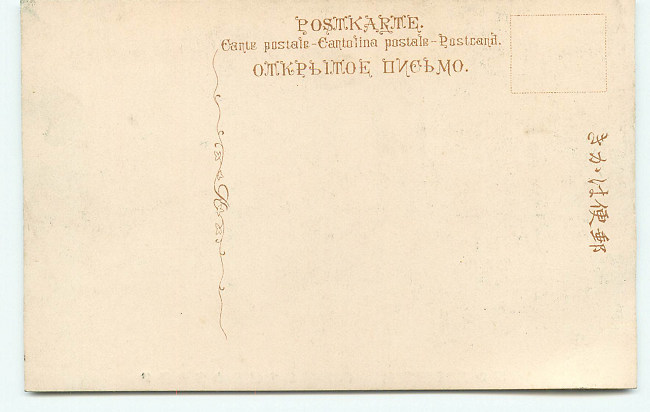 POSTKARTE.
Carte postale–Cartolina postale–Postcard.
ОТКРЫТОЕ ПИСЬМО.
きかは便郵